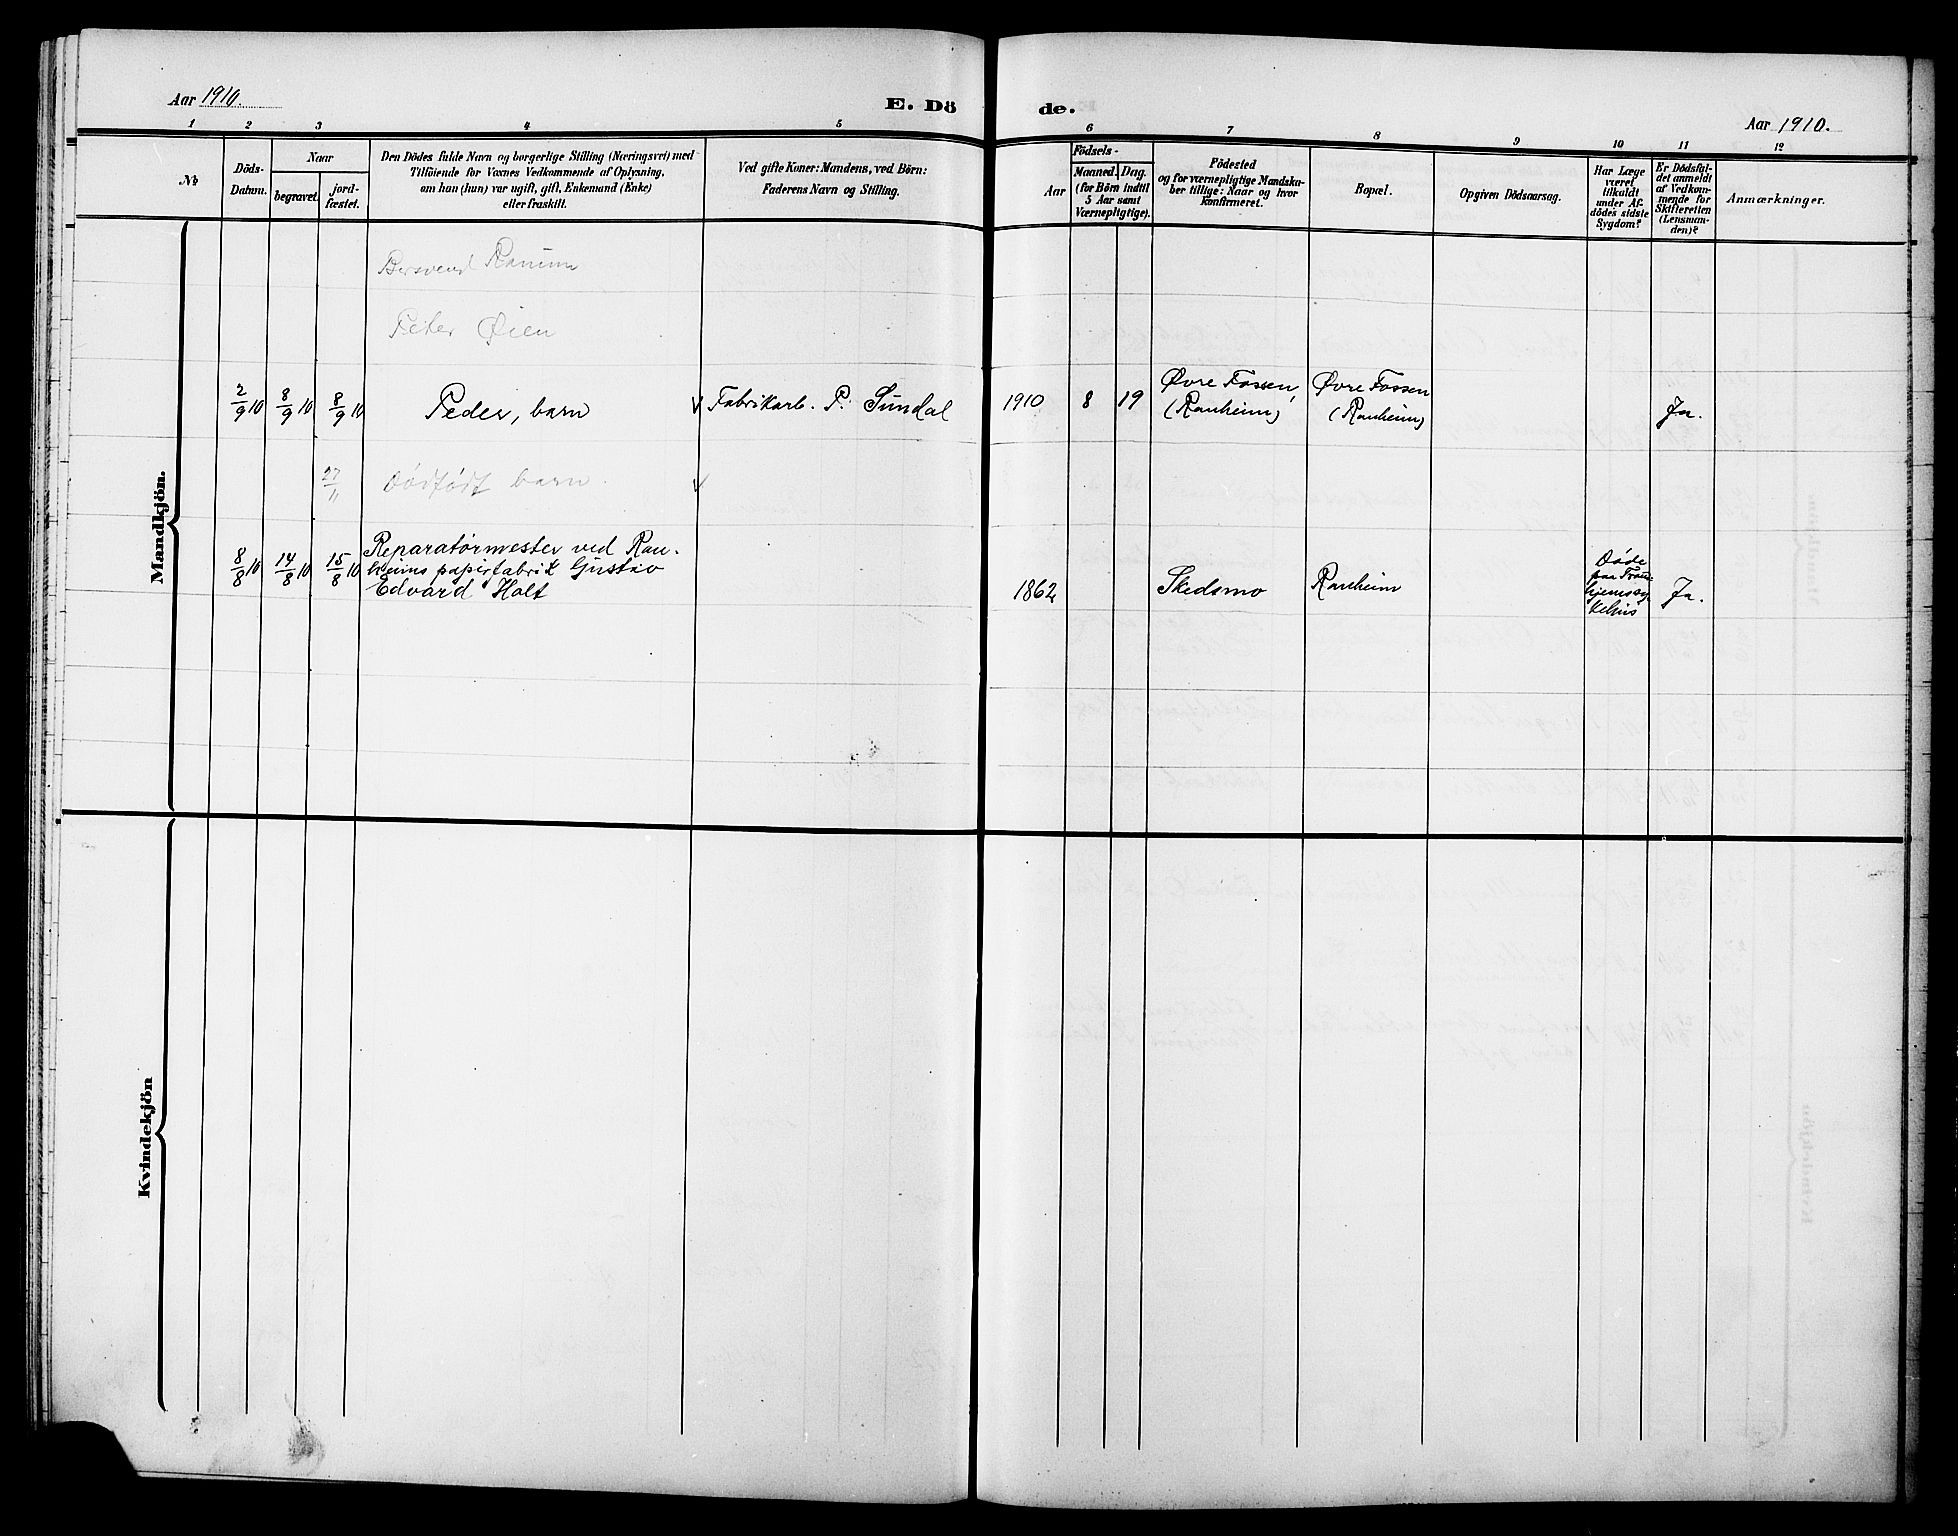 Aar 1910.
E. Dö de.
Aar 1910.
1 2 3 4 5 6 7 8 9 10 11 12
No
Döds-
Datum.
Naar
begravet.
jord-
fæstet.
Den Dödes fulde Navn og borgerlige Stilling (Næringsvei) med
Tilföiende for Voxnes Vedkommende af Oplysning,
om han (hun) var ugift, gift, Enkemand (Enke)
eller fraskilt.
Ved gifte Koner: Mandens, ved Börn:
Faderens Navn og Stilling.
Födsels-
Aar
Maaned. Dag.
(for Börn indtil
5 Aar samt
Værnepligtige).
Födested
og for værnepligtige Mandska-
ber tillige: Naar og hvor
konfirmeret.
Bopæl.
Opgiven Dödsaarsag.
Har Læge
været
tilkaldt
under Af-
dödes sidste
Sygdom?
Er Dödsfal-
det anmeldt
af Vedkom-
mende for
Skifteretten
(Lensman-
den)?
Anmærkninger.
Mandkjön.
Bersvend Ranum
Peter Øien
2/9 10 8/9 10 8/9 10 Peder, barn √ Fabrikarb. P. Sundal 1910 8 19 Øvre Fossen, (Ranheim) Øvre Fossen (Ranheim) Ja.
27/11 Dødfødt barn √
8/8 10 14/8 10 15/8 10 Reparatørmester ved Ran-
heims papirfabrik Gustav
Edvard Holt 1862 Skedsmo Ranheim Døde
paa Tron-
hjems sy-
kehus Ja.
Kvindekjön